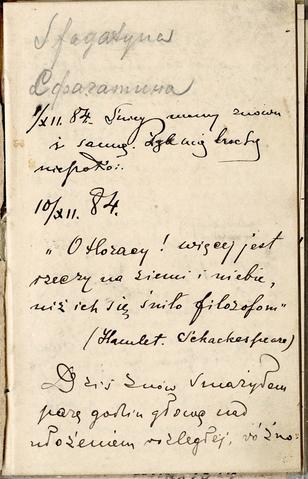 Sfagatyna
Сфагатина
1/XII. 84. Śnieg mamy znowu
i sannę. Żyłe mię trochę
niepokoi.
10/XII. 84.
„O Horacy! więcej jest
rzeczy na ziemi i niebie,
niż ich się śniło filozofom"
(Hamlet. Schackespeare)
Dziś znów smażyłem
parę godzin głowę nad
ułożeniem rozległej, różno-